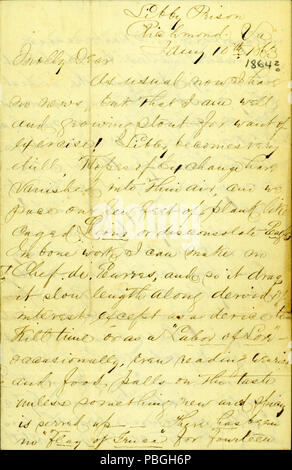 Libby Prison
Richmond Va
Aug 10th 1863
1864?
Molly Dear
As usual now I have
no news, but that I am well
and growing stout for want of
exercise! Libby becomes very
dull, Hopes of Exchange have
vanished into thin air, and we
pace our few feet of plank like
caged Lions or disconsolate
In bone work, I can make no
Chef de, and so it drags
it slow length along devoid of
interest except as a device to
Kill time or as a "Labor of Love"
occasionally, even reading wearies
and food palls on the taste
unless something new and spicy
is served up. There has been
no "Flag of Truce" for fourteen
alamy
Image ID: PBGH6P
www.alamy.com